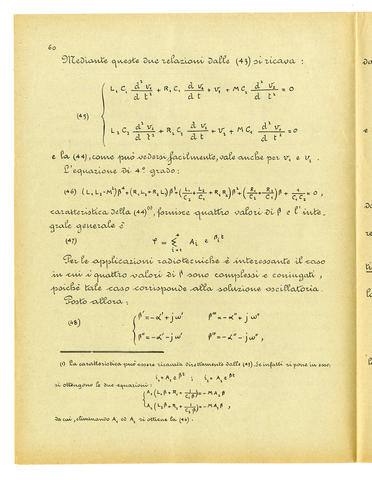 60
Mediante queste due relazioni dalle (43) si ricava :
L₁ C₁ d² v₁/d t² + R₁ C₁ d v₁/d t + v₁ + M C₂ d² v₂/d t² = 0
(45)
L₂ C₂ d² v₂/d t² + R₂ C₂ d v₂/d t + v₂ + M C₁ d² v₁/d t² = 0
e la (44), come può vedersi facilmente, vale anche per v₁ e v₂ .
L'equazione di 4° grado:
(46) (L₁ L₂ - M²) β⁴ + (R₁ L₂ + R₂ L₁) β³ + (L₁/C₂ + L₂/C₁ + R₁ R₂) β² + (R₁/C₂ + R₂/C₁) β + 1/C₁ C₂ = 0 ,
caratteristica della (44)⁽¹⁾, fornisce quattro valori di β e l'inte-
grale generale è
(47) φ = Σ Aᵢ e βᵢ t
Per le applicazioni radiotecniche è interessante il caso
in cui i quattro valori di β sono complessi e coniugati ,
poichè tale caso corrisponde alla soluzione oscillatoria.
Posto allora :
β' = - α' + j ω' β''' = - α'' + j ω''
(48)
β'' = - α' - j ω' β'''' = - α'' - j ω'' ,
(1) La caratteristica può essere ricavata direttamente dalle (43). Se infatti si pone in esse:
i₁ = A₁ e β t ; i₂ = A₂ e β t
si ottengono le due equazioni :
A₁ (L₁ β + R₁ + 1/C₁ β) = - M A₂ β
A₂ (L₂ β + R₂ + 1/C₂ β) = - M A₁ β ,
da cui, eliminando A₁ ed A₂ si ottiene la (46) .